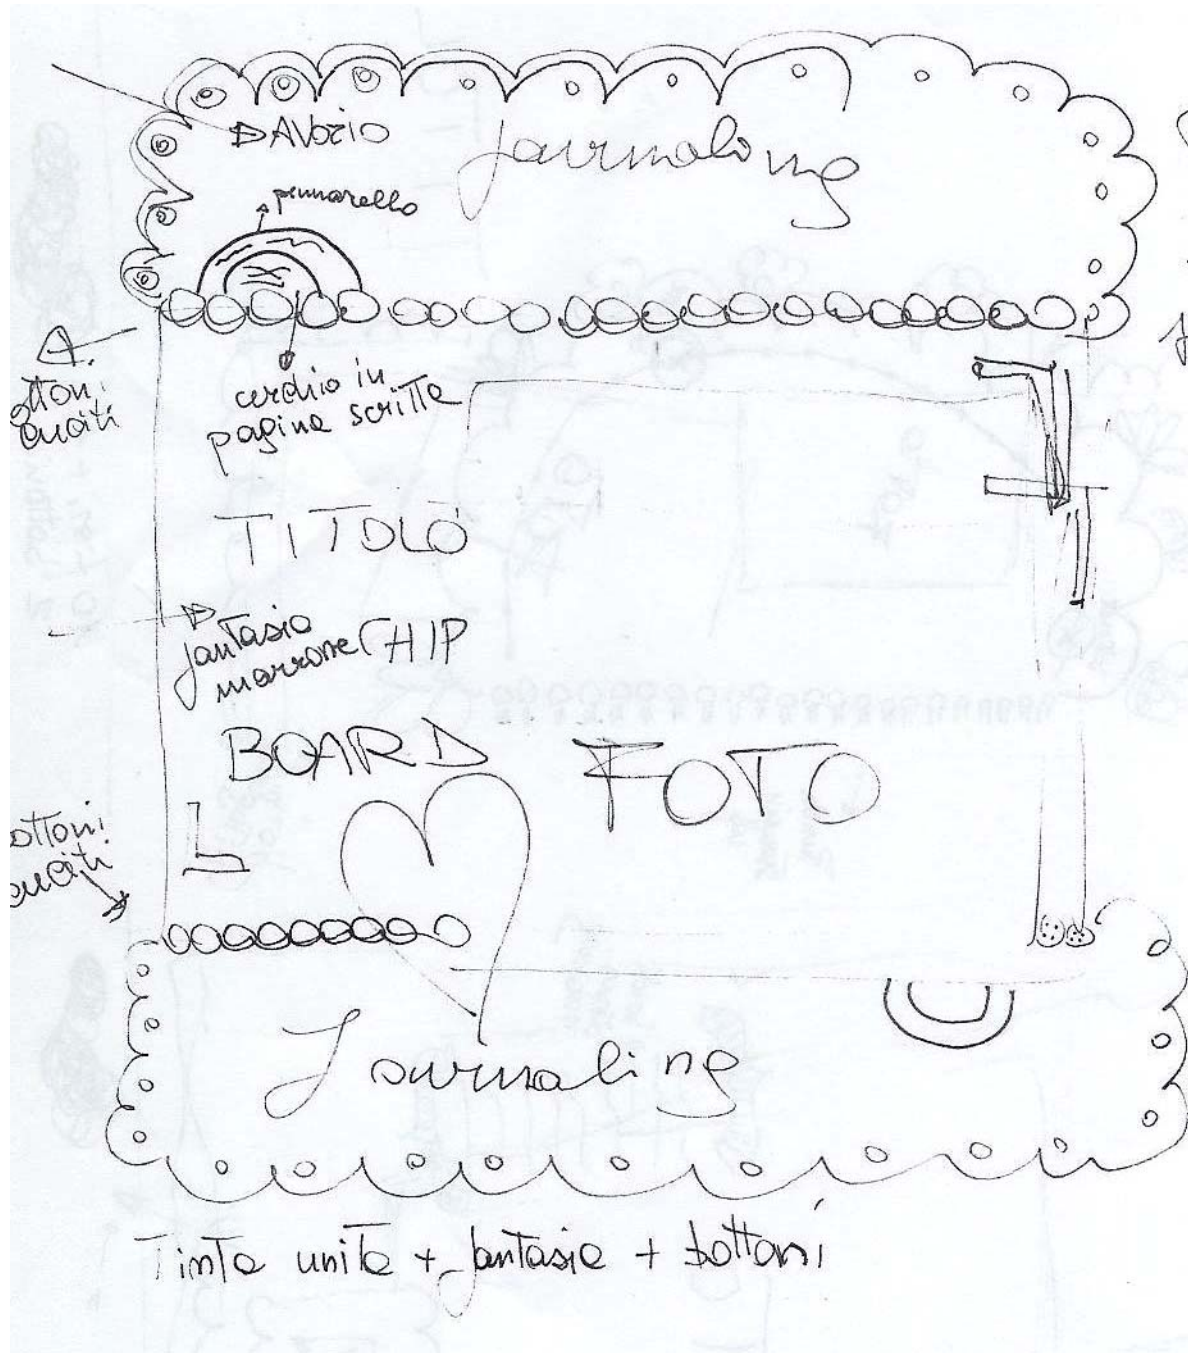 AVorio
Journaling
pennarello
ottoni
cuciti
cerchio in
pagina scritta
TITOLO
fantasia
marrone
CHIP
BOARD
FOTO
ottoni
cuciti
Journaling
Tinta unita + fantasia + bottoni